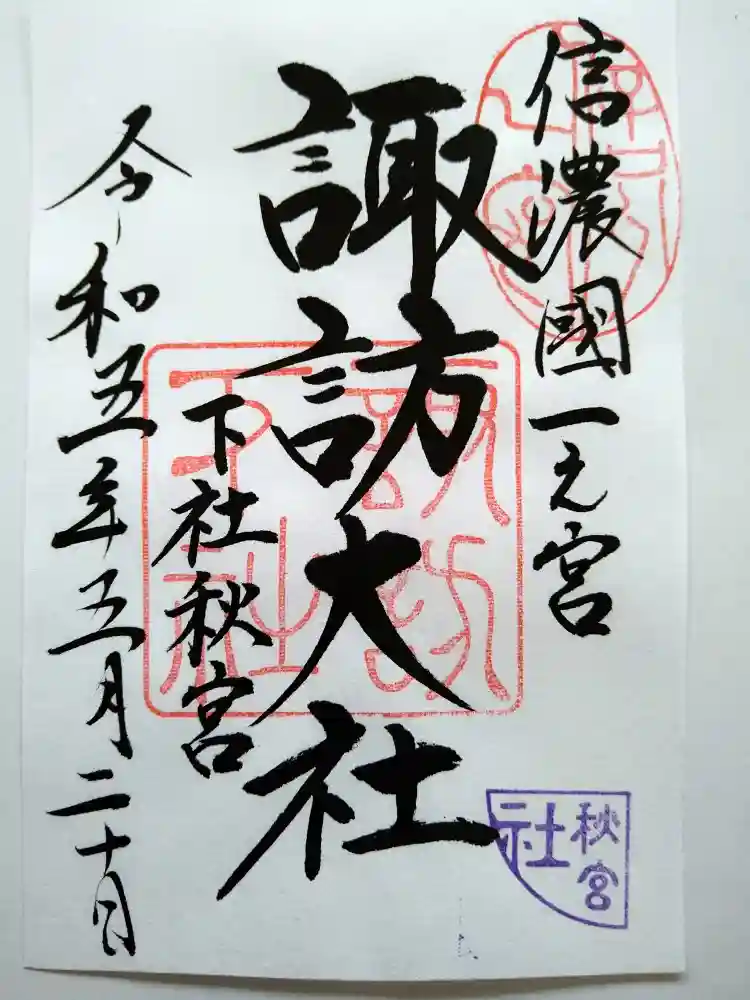 信濃國一之宮
諏訪大社
下社秋宮
令和五年五月二十日
諏訪
下社
秋宮
社